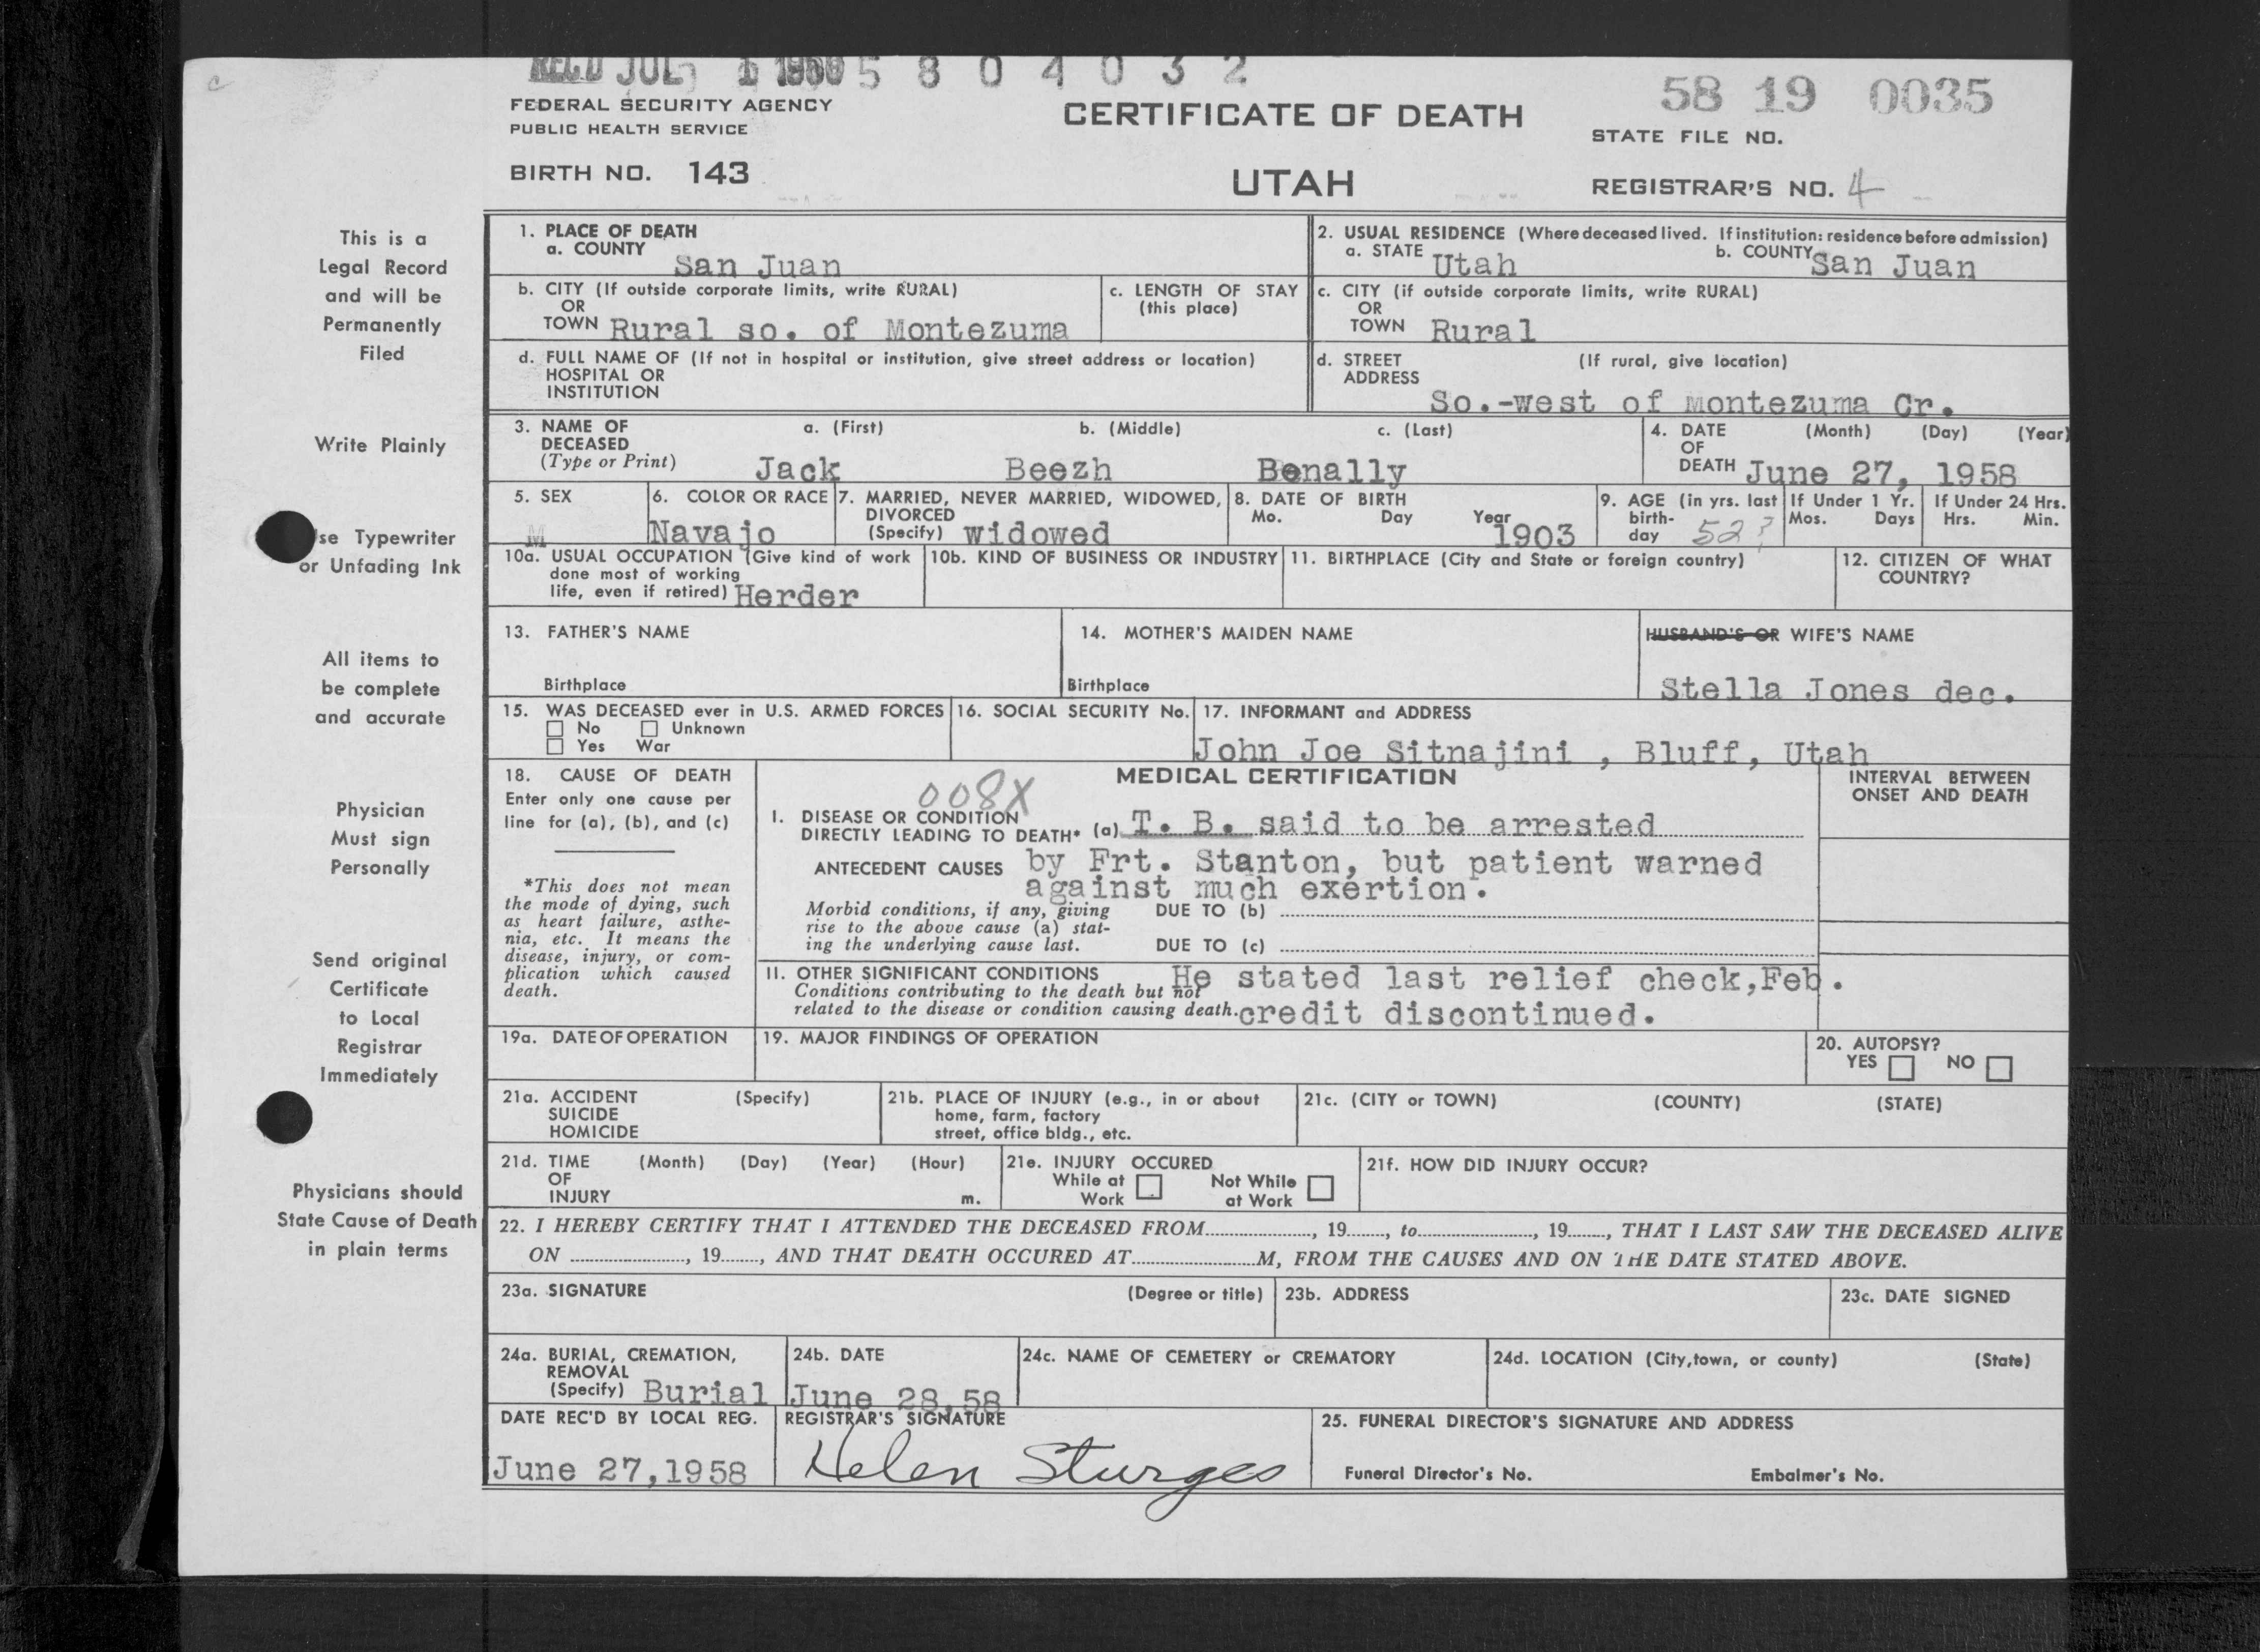 REC'D JUL 1 1958 5 8 0 4 0 3 2
58 19 0035
FEDERAL SECURITY AGENCY
PUBLIC HEALTH SERVICE
CERTIFICATE OF DEATH
STATE FILE NO.
BIRTH NO. 143
UTAH
REGISTRAR'S NO. 4
This is a
Legal Record
and will be
Permanently
Filed
Write Plainly
se Typewriter
or Unfading Ink
All items to
be complete
and accurate
Physician
Must sign
Personally
Send original
Certificate
to Local
Registrar
Immediately
Physicians should
State Cause of Death
in plain terms
1. PLACE OF DEATH
a. COUNTY San Juan
2. USUAL RESIDENCE (Where deceased lived. If institution: residence before admission)
a. STATE Utah b. COUNTY San Juan
b. CITY (If outside corporate limits, write RURAL)
OR
TOWN Rural so. of Montezuma
c. LENGTH OF STAY
(this place)
c. CITY (if outside corporate limits, write RURAL)
OR
TOWN Rural
d. FULL NAME OF (If not in hospital or institution, give street address or location)
HOSPITAL OR
INSTITUTION
d. STREET (If rural, give location)
ADDRESS
So.-west of Montezuma Cr.
3. NAME OF a. (First) b. (Middle) c. (Last)
DECEASED
(Type or Print) Jack Beezh Benally
4. DATE (Month) (Day) (Year)
OF
DEATH June 27, 1958
5. SEX
M
6. COLOR OR RACE
Navajo
7. MARRIED, NEVER MARRIED, WIDOWED,
DIVORCED
(Specify) widowed
8. DATE OF BIRTH
Mo. Day Year
1903
9. AGE (in yrs. last
birth-
day 52?
If Under 1 Yr.
Mos. Days
If Under 24 Hrs.
Hrs. Min.
10a. USUAL OCCUPATION (Give kind of work
done most of working
life, even if retired) Herder
10b. KIND OF BUSINESS OR INDUSTRY
11. BIRTHPLACE (City and State or foreign country)
12. CITIZEN OF WHAT
COUNTRY?
13. FATHER'S NAME
Birthplace
14. MOTHER'S MAIDEN NAME
Birthplace
HUSBAND'S OR WIFE'S NAME
Stella Jones dec.
15. WAS DECEASED ever in U.S. ARMED FORCES
No Unknown
Yes War
16. SOCIAL SECURITY No.
17. INFORMANT and ADDRESS
John Joe Sitnajini , Bluff, Utah
18. CAUSE OF DEATH
Enter only one cause per
line for (a), (b), and (c)
*This does not mean
the mode of dying, such
as heart failure, asthe-
nia, etc. It means the
disease, injury, or com-
plication which caused
death.
MEDICAL CERTIFICATION
INTERVAL BETWEEN
ONSET AND DEATH
008X
I. DISEASE OR CONDITION
DIRECTLY LEADING TO DEATH* (a) T. B. said to be arrested
ANTECEDENT CAUSES by Frt. Stanton, but patient warned
against much exertion.
Morbid conditions, if any, giving DUE TO (b)
rise to the above cause (a) stat-
ing the underlying cause last. DUE TO (c)
II. OTHER SIGNIFICANT CONDITIONS He stated last relief check,Feb.
Conditions contributing to the death but not
related to the disease or condition causing death. credit discontinued.
19a. DATE OF OPERATION
19. MAJOR FINDINGS OF OPERATION
20. AUTOPSY?
YES NO
21a. ACCIDENT (Specify)
SUICIDE
HOMICIDE
21b. PLACE OF INJURY (e.g., in or about
home, farm, factory
street, office bldg., etc.
21c. (CITY or TOWN) (COUNTY) (STATE)
21d. TIME (Month) (Day) (Year) (Hour)
OF
INJURY m.
21e. INJURY OCCURED
While at Not While
Work at Work
21f. HOW DID INJURY OCCUR?
22. I HEREBY CERTIFY THAT I ATTENDED THE DECEASED FROM............, 19......, to............, 19......, THAT I LAST SAW THE DECEASED ALIVE
ON ............, 19......, AND THAT DEATH OCCURED AT............M, FROM THE CAUSES AND ON THE DATE STATED ABOVE.
23a. SIGNATURE (Degree or title)
23b. ADDRESS
23c. DATE SIGNED
24a. BURIAL, CREMATION,
REMOVAL
(Specify) Burial
24b. DATE
June 28,58
24c. NAME OF CEMETERY or CREMATORY
24d. LOCATION (City, town, or county) (State)
DATE REC'D BY LOCAL REG.
June 27,1958
REGISTRAR'S SIGNATURE
Helen Sturges
25. FUNERAL DIRECTOR'S SIGNATURE AND ADDRESS
Funeral Director's No. Embalmer's No.